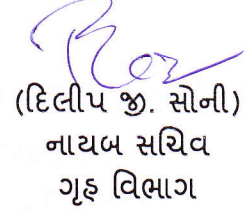 (દિલીપ જી. સોની)
નાયબ સચિવ
ગૃહ વિભાગ